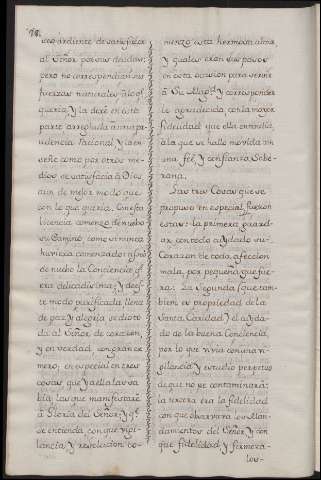 78.
ceo ardiente de satisfacer
al Señor por sus deudas;
pero no correspondian sus
fuerzas naturales a lo q.
queria, y la dexè en esta
parte arreglada a una pru-
dencia racional, y la en-
señe como por otros me-
dios se satisfacia à Dios
aun de mejor modo que
con lo que queria. Con esta
licencia comenzò de nuebo
su Camino como si nunca
huviera comenzado: rebistò
de nuebo la Conciencia q.
era delicadisima; y de es-
te modo purificada, llena
de paz y alegria se dio to-
da al Señor de corazon,
y en verdad con gran es-
mero; en especial en tres
cosas que ya ella las sa-
bia, las que manifestarè
à Gloria del Señor, y q.
se entienda, con que vigi-
lancia, y resolucion co-
menzò esta hermosa alma
y quales eran sus pasos
en esta ocasion para servir
à Su Mag.d y corresponder
le agradecida con la mayor
fidelidad que ella entendia,
à la que se hallò movida con
una fee, y confianza Sobe-
rana.
Las tres Cosas que se
propuso en especial fueron
estas: la primera guard-
ar con todo cuydado su
Corazon de toda afeccion
mala, por pequeña que fue-
ra: La Segunda (que tam-
bien es propriedad de la
Santa Caridad) el cuyda-
do de la buena Conciencia,
por lo que vivia con una vi-
gilancia y estudio perpetuo
de que no se contaminarà:
la tercera era la fidelidad
con que observaria los Man-
damientos del Señor, y con
que fidelidad, y firmeza
los-